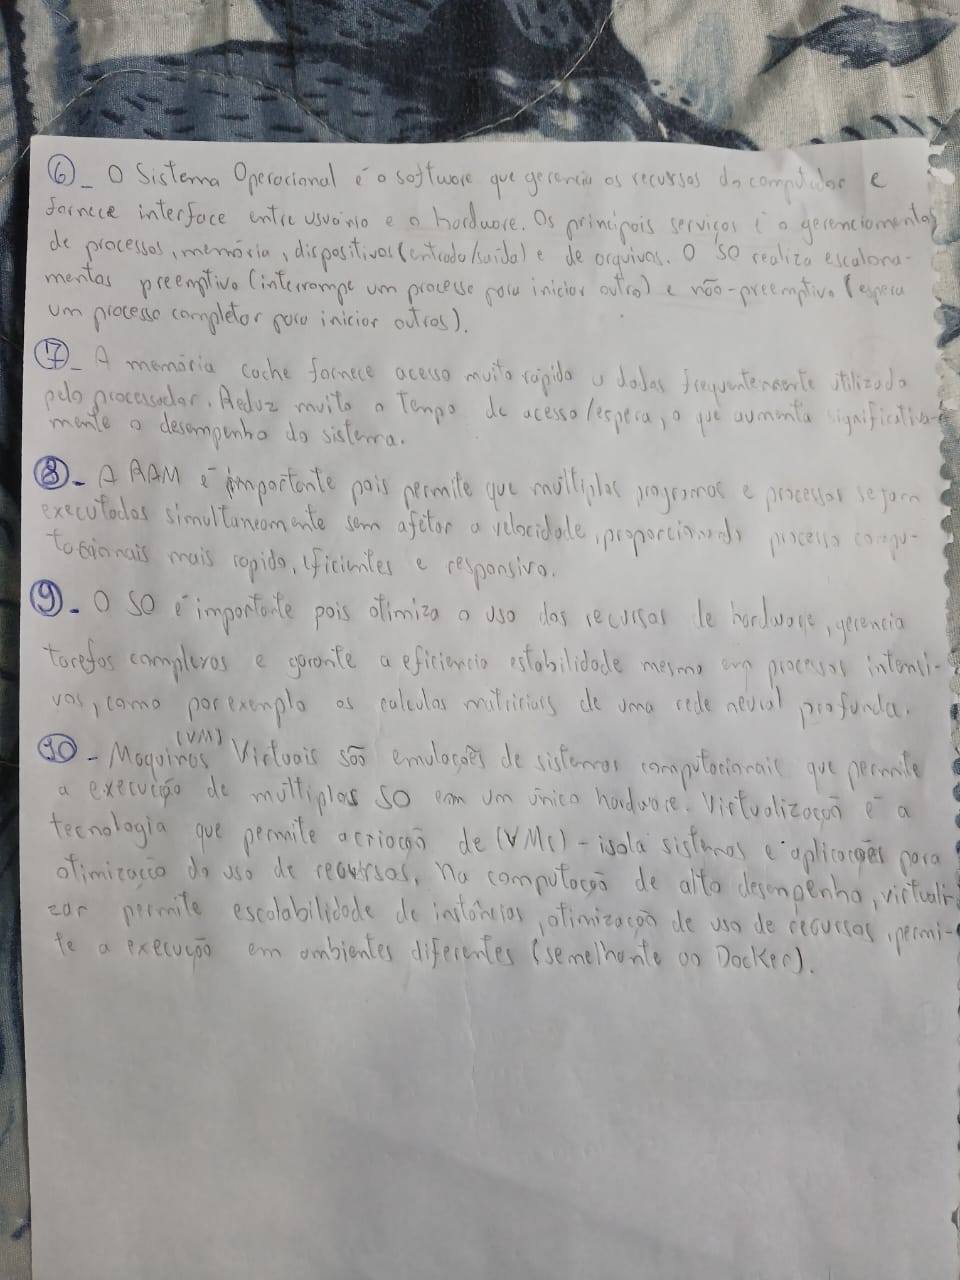 6_ O Sistema Operacional é o software que gerencia os recursos do computador e
fornece interface entre usuário e o hardware. Os principais serviços é o gerenciamento
de processos, memória, dispositivos (entrada/saída) e de arquivos. O SO realiza escalona-
mentos preemptivo (interrompe um processo para iniciar outro) e não-preemptivo (espera
um processo completar para iniciar outros).
7_ A memória cache fornece acesso muito rápido a dados frequentemente utilizado
pelo processador. Reduz muito o tempo de acesso/espera, o que aumenta significativa-
mente o desempenho do sistema.
8_ A RAM é importante pois permite que múltiplos programas e processos sejam
executados simultaneamente sem afetar a velocidade, proporcionando processo compu-
tacionais mais rapido, eficientes e responsivo.
9_ O SO é importante pois otimiza o uso dos recursos de hardware, gerencia
tarefas complexas e garante a eficiencia estabilidade mesmo em processos intensi-
vos, como por exemplo os calculos matriciais de uma rede neural profunda.
10 - Maquinas (VM) Virtuais são emulações de sistemas computacionais que permite
a execução de múltiplos SO em um único hardware. Virtualização é a
tecnologia que permite a criação de (VMs) - isola sistemas e aplicações para
otimização do uso de recursos. Na computação de alto desempenho, virtuali-
zar permite escalabilidade de instâncias, otimização de uso de recursos, permi-
te a execução em ambientes diferentes (semelhante ao Docker).